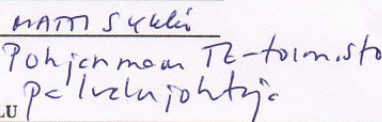 MATTI
Pohjanmaan TE-toimisto
Palvelujohtaja
LU